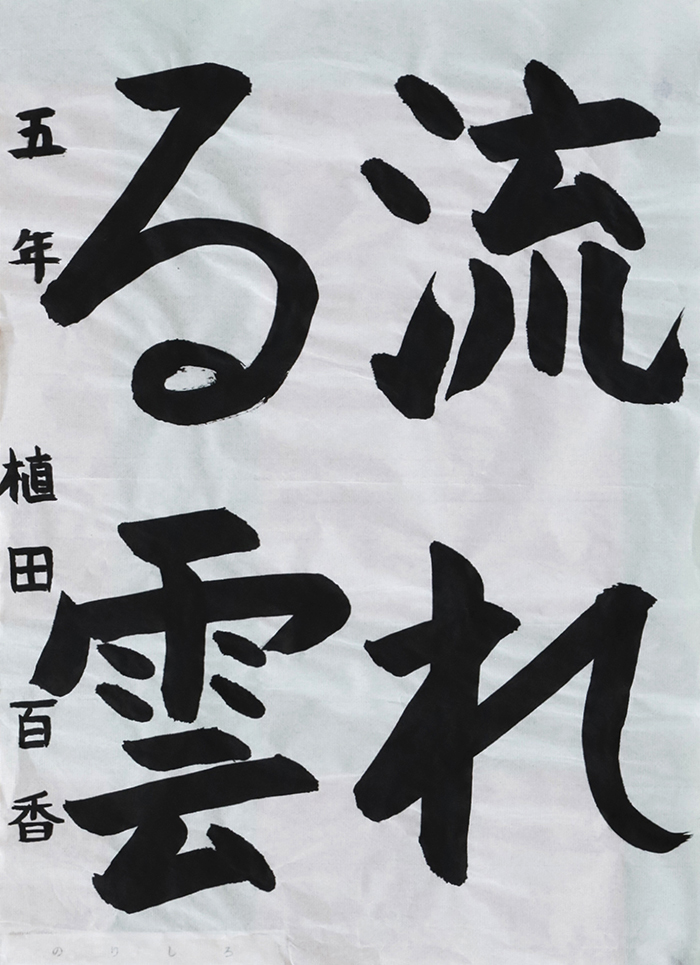 流れ
る雲
五年 植田百香
のりしろ